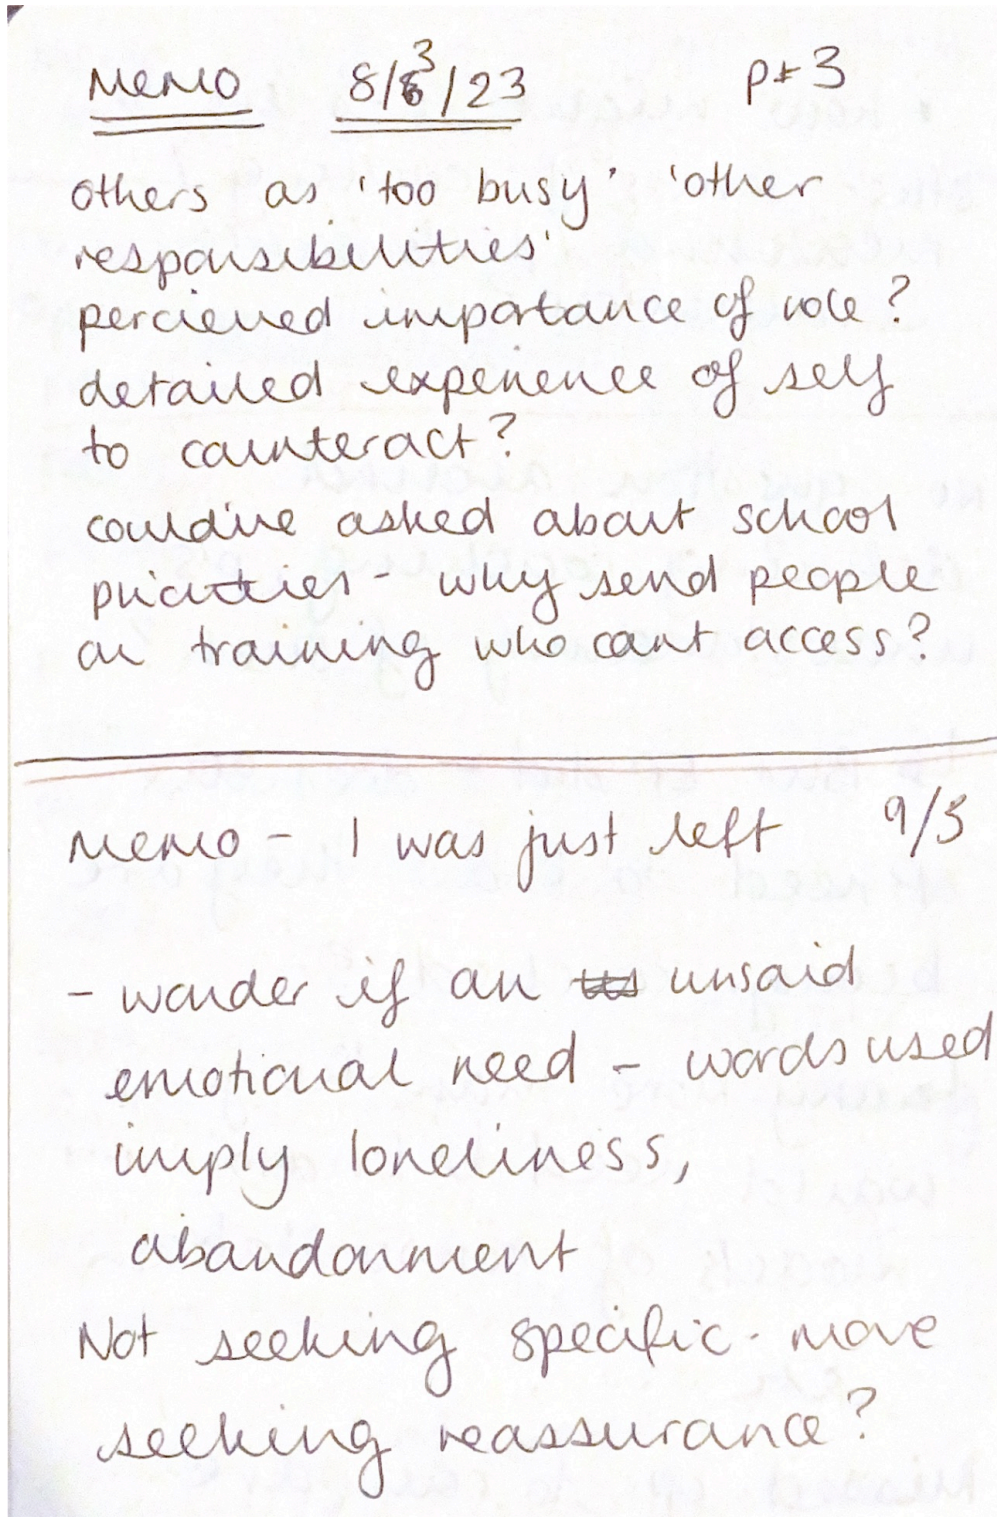 Memo 8/3/23 pt 3
others as 'too busy' 'other
responsibilities'
percieved importance of role?
detailed experience of self
to counteract?
couldve asked about school
priorities - why send people
on training who cant access?
Memo - I was just left 9/3
- wonder if an unsaid
emotional need - words used
imply loneliness,
abandonment
Not seeking specific - more
seeking reassurance?